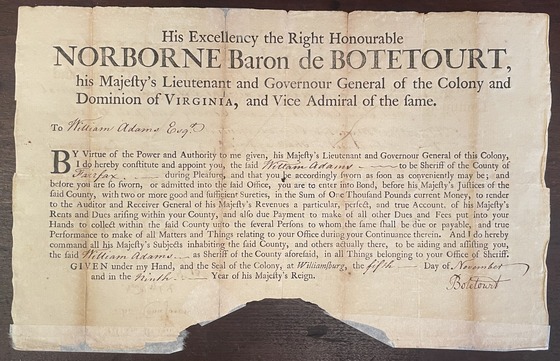 His Excellency the Right Honourable
NORBORNE Baron de BOTETOURT,
his Majeſty's Lieutenant and Governour General of the Colony and
Dominion of VIRGINIA, and Vice Admiral of the ſame.
To William Adams Esqr.
BY Virtue of the Power and Authority to me given, his Majeſty's Lieutenant and Governour General of this Colony,
I do hereby conſtitute and appoint you, the ſaid William Adams to be Sheriff of the County of
Fairfax during Pleaſure, and that you be accordingly ſworn as ſoon as conveniently may be; and
before you are ſo ſworn, or admitted into the ſaid Office, you are to enter into Bond, before his Majeſty's Juſtices of the
ſaid County, with two or more good and ſufficient Sureties, in the Sum of One Thouſand Pounds current Money, to render
to the Auditor and Receiver General of his Majeſty's Revenues a particular, perfect, and true Account, of his Majeſty's
Rents and Dues ariſing within your County, and alſo due Payment to make of all other Dues and Fees put into your
Hands to collect within the ſaid County unto the ſeveral Perſons to whom the ſame ſhall be due or payable, and true
Performance to make of all Matters and Things relating to your Office during your Continuance therein. And I do hereby
command all his Majeſty's Subjects inhabiting the ſaid County, and others actually there, to be aiding and aſſiſting you,
the ſaid William Adams as Sheriff of the County aforeſaid, in all Things belonging to your Office of Sheriff.
GIVEN under my Hand, and the Seal of the Colony, at Williamſburg, the fifth Day of November
and in the Ninth Year of his Majeſty's Reign.
Botetourt